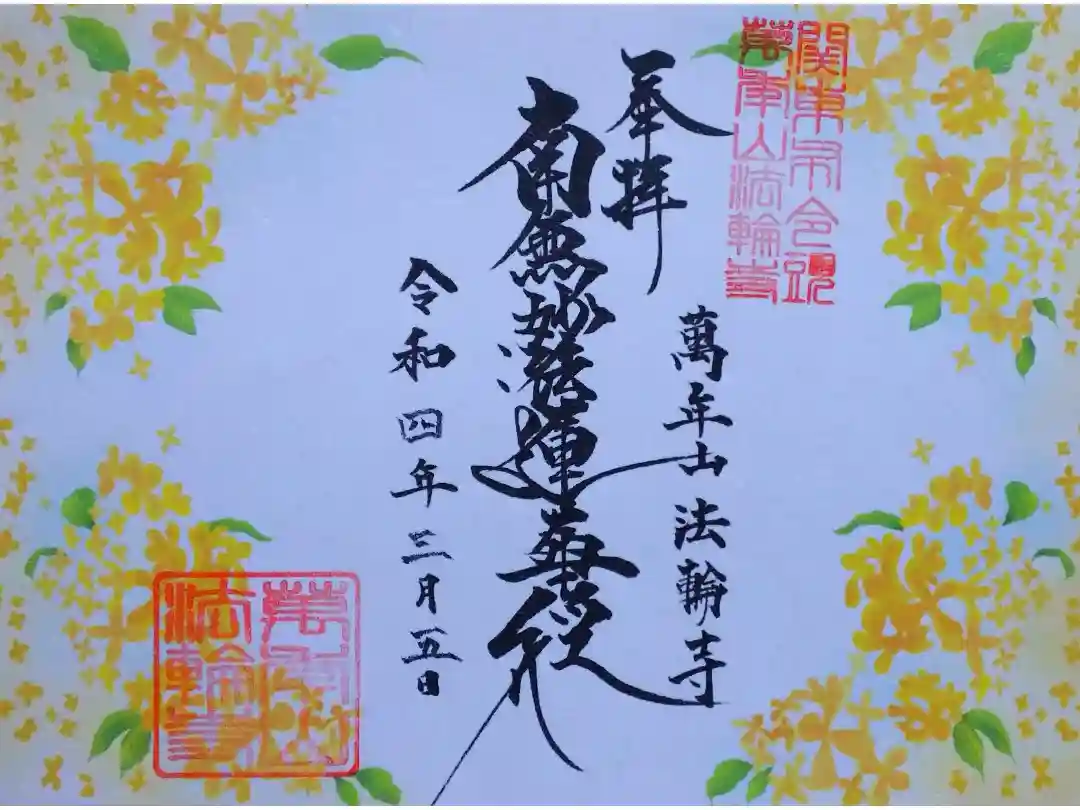 萬年山法輪寺
奉拝
萬年山法輪寺
南無妙法蓮華経
令和四年三月五日
萬年山
法輪寺